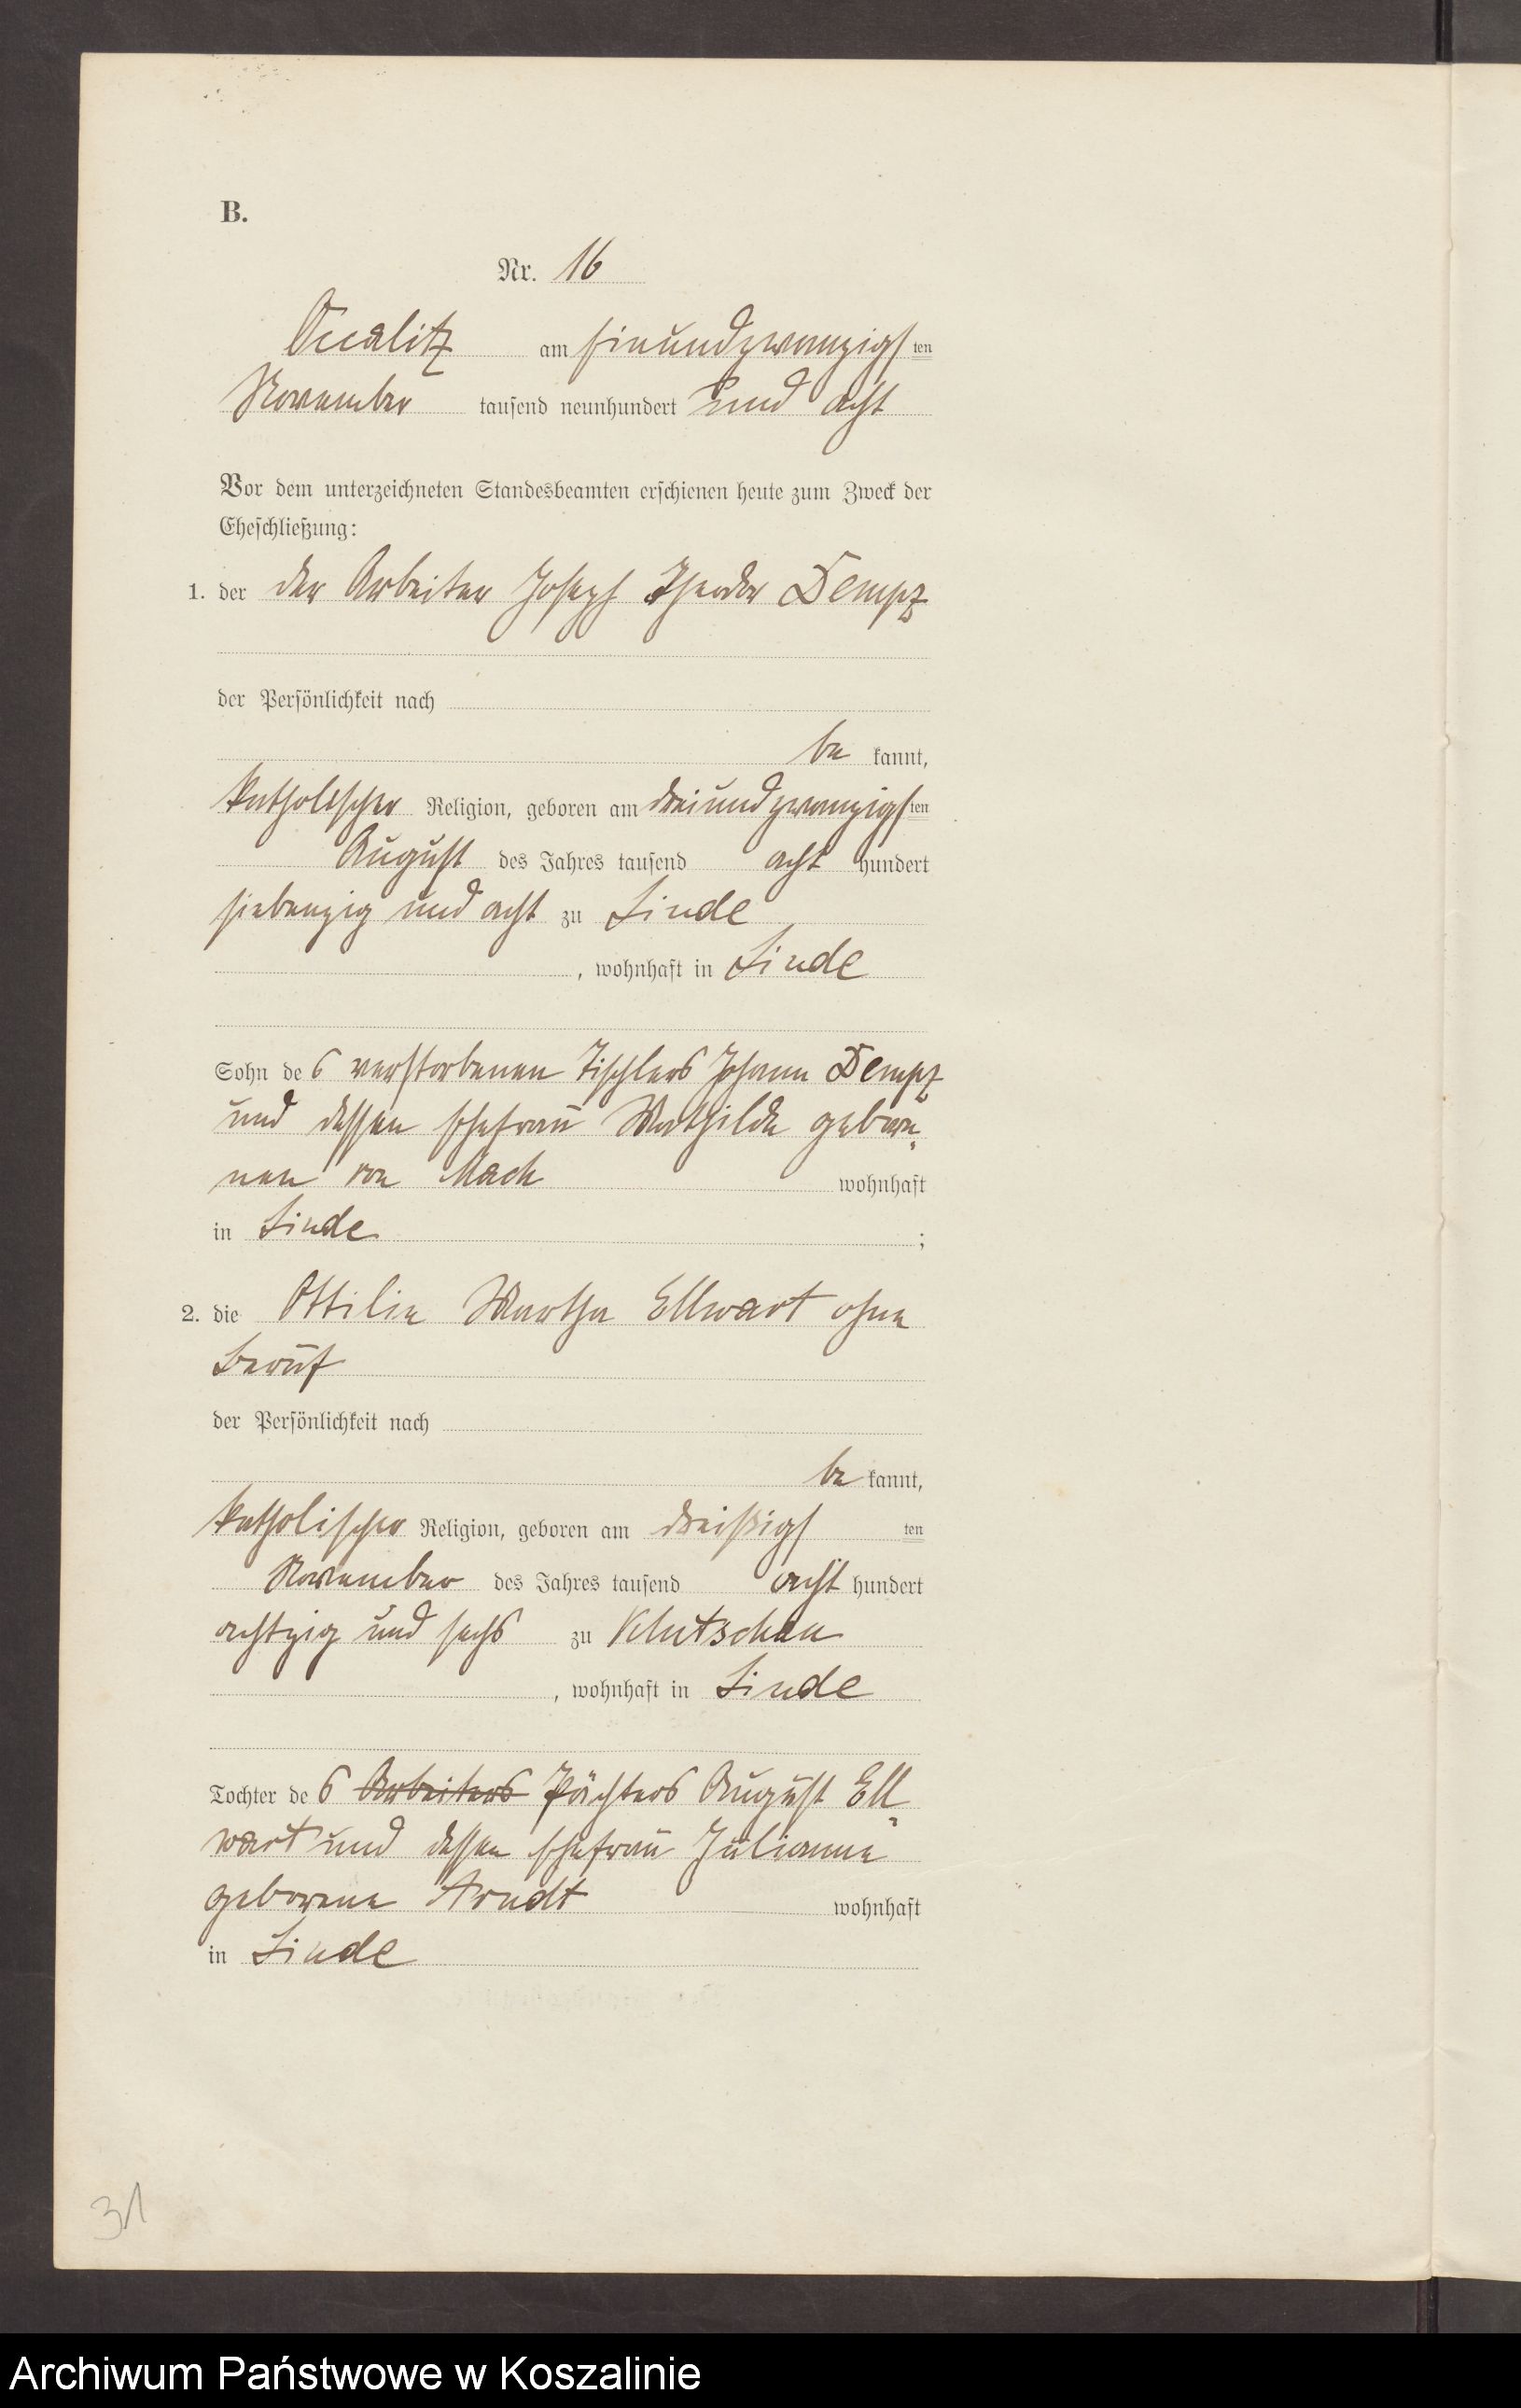 B.
Nr. 16
Occalitz am einundzwanzigsten
November tausend neunhundert und acht
Vor dem unterzeichneten Standesbeamten erschienen heute zum Zweck der
Eheschließung:
1. der der Arbeiter Joseph Theodor Dempz
der Persönlichkeit nach
be kannt,
katholischer Religion, geboren am dreiundzwanzigsten
August des Jahres tausend acht hundert
siebenzig und acht zu Linde
, wohnhaft in Linde
Sohn des verstorbenen Tischlers Johann Dempz
und dessen Ehefrau Mathilde gebore„
nen von Mach wohnhaft
in Linde ;
2. die Ottilie Martha Ellwart ohne
Beruf
der Persönlichkeit nach
be kannt,
katholischer Religion, geboren am dreißigsten
November des Jahres tausend acht hundert
achtzig und sechs zu Klutschau
, wohnhaft in Linde
Tochter des Arbeiters Pächters August Ell„
wart und dessen Ehefrau Julianne
geborene Arndt wohnhaft
in Linde
31
Archiwum Państwowe w Koszalinie